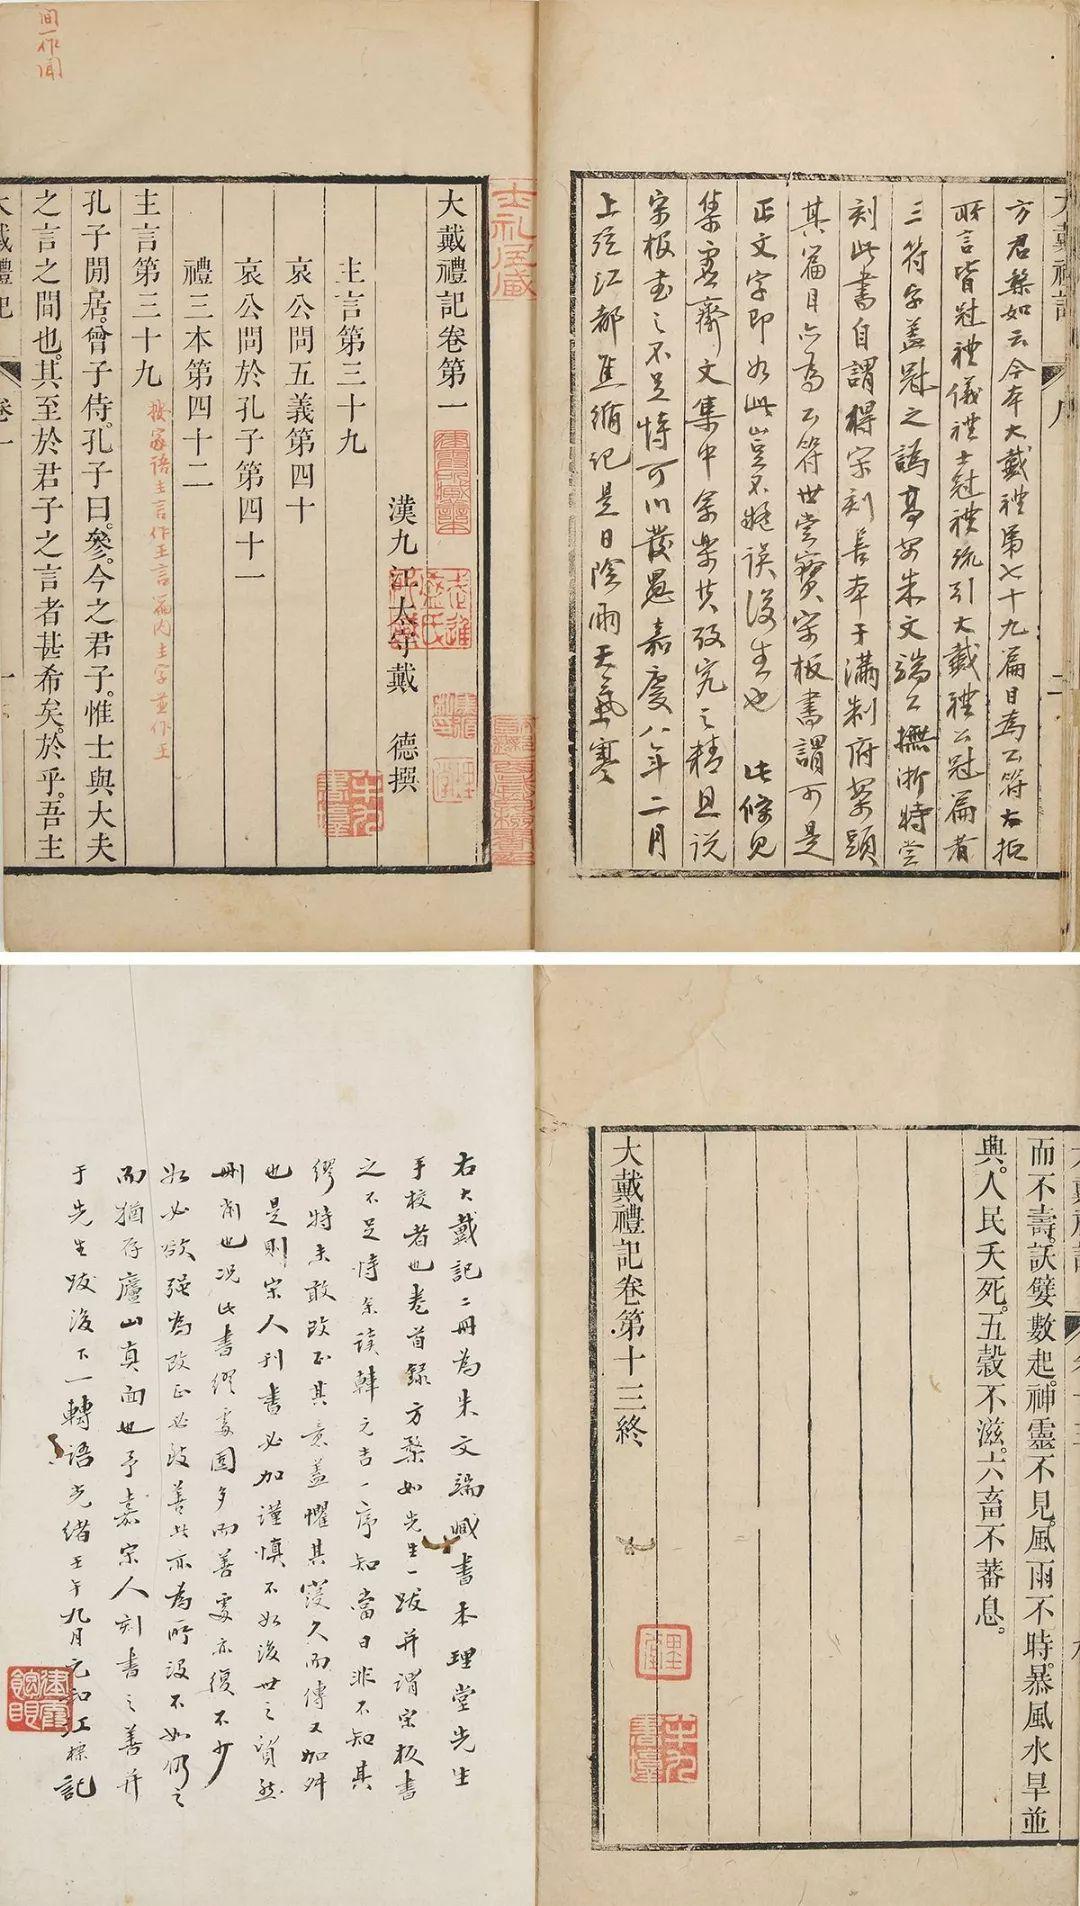 大戴禮記
序
二
方君粲如云今本大戴禮第七十九篇目爲公符大抵
所言皆冠禮儀禮士冠禮疏引大戴禮公冠篇者
三符字蓋冠之譌高安朱文端公撫浙時嘗
刻此書自謂得宋刻善本于滿制府案頭
其篇目亦爲公符世嘗寶宋板書謂可是
正文字即如此豈不疑誤後生也 此條見
集虛齋文集中余樂其攷究之精且說
宋板書之不足恃可以發愚嘉慶八年二月
上弦江都焦循記是日陰雨天氣寒
間一作閒
士礼居藏
大戴禮記卷第一
漢九江太守戴 德撰
主言第三十九
哀公問五義第四十
哀公問於孔子第四十一
禮三本第四十二
主言第三十九
按家語主言作王言篇内主字並作王
孔子閒居。曾子侍。孔子曰。參。今之君子。惟士與大夫
之言之間也。其至於君子之言者甚希矣。於乎。吾主
大戴禮記
卷一
一
而不壽。訞孽數起。神靈不見。風雨不時。暴風水旱並
興。人民夭死。五穀不滋。六畜不蕃息。
大戴禮記卷第十三終
右大戴記二冊爲朱文端藏書本理堂先生
手校者也卷首錄方粲如先生一跋并謂宋板書
之不足恃余讀韓元吉一序知當日非不知其
繆特未敢改正其意蓋懼其寖久而傳又加舛
也是則宋人刊書必加謹慎不如後世之貿然
刪削也况此書繆處固多而善處亦復不少
如必欲强爲改正必歧善此亦爲所没不如仍之
而猶存廬山真面也予嘉宋人刻書之善并
于先生跋後下一轉語光緒壬午九月元和江標記